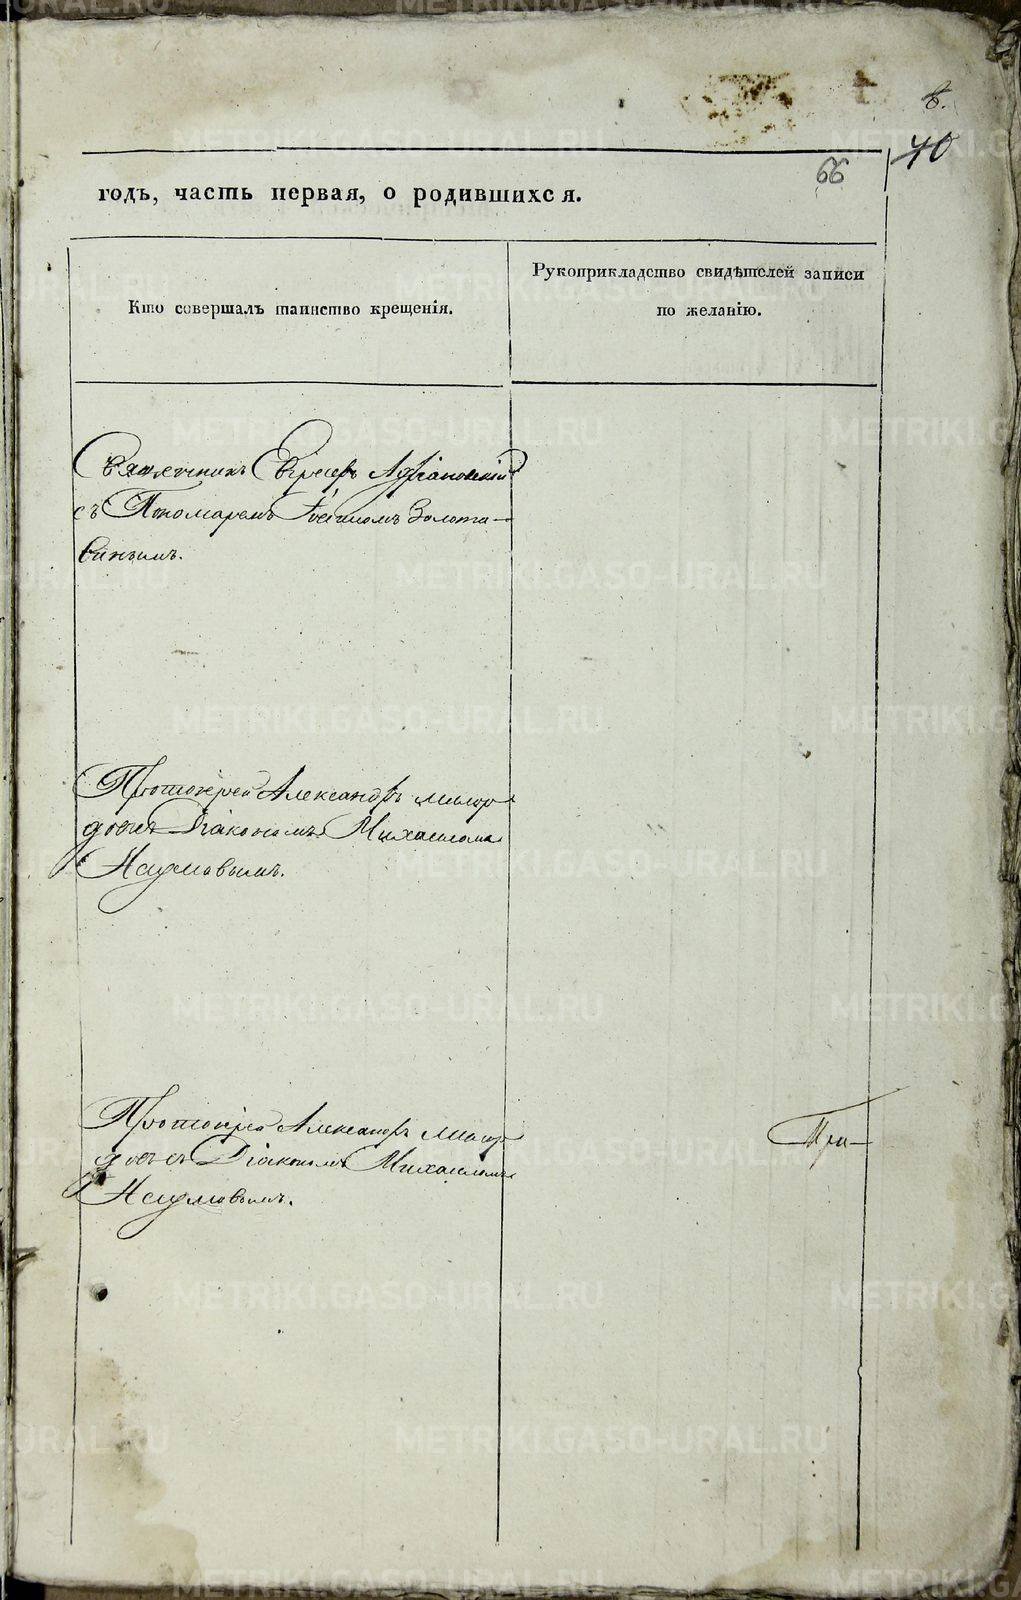 8.
40
66
годъ, часть первая, о родившихся.
Кто совершалъ таинство крещенія.
Рукоприкладство свидѣтелей записи
по желанію.
Священникъ Адріановскій
съ Пономаремъ Золота-
винымъ.
Протоіерей Александръ
Діакономъ Михаиломъ
Наумовымъ.
Протоіерей Александръ
Діакономъ Михаиломъ
Наумовымъ.
При-
METRIKI.GASO-URAL.RU